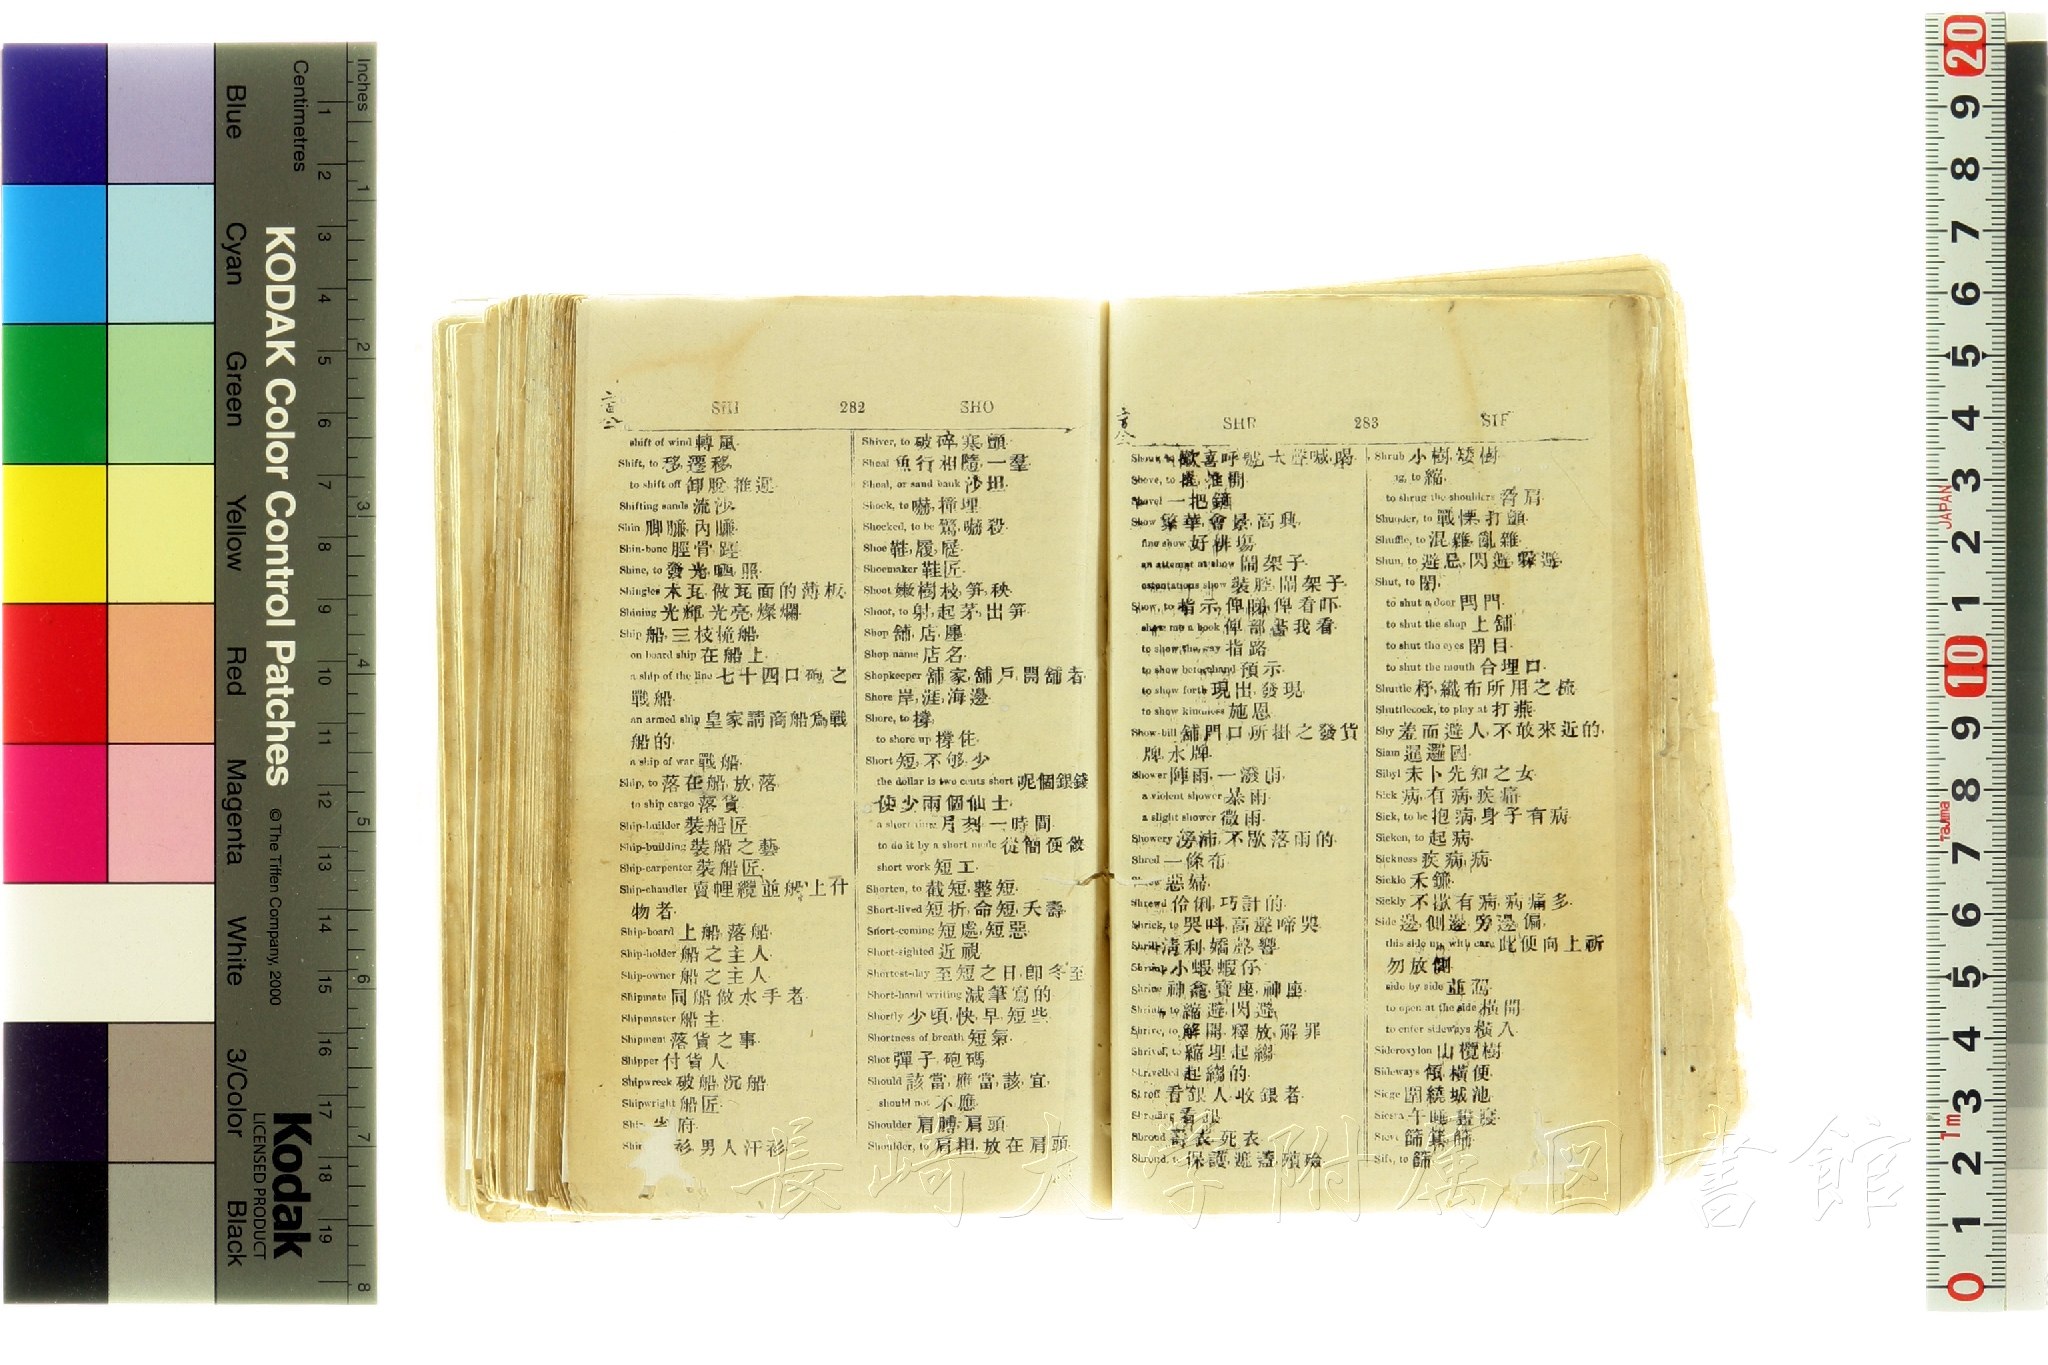 SHI 282 SHO
shift of wind 轉風
Shift, to 移, 遷移
to shift off 卸脫, 推
Shifting sands 流沙
Shin 脚臁, 內臁
Shin-bone 脛骨
Shine, to 發光, 照
Shingles 木瓦, 做瓦面的薄板
Shining 光輝, 光亮, 燦爛
Ship 船, 三枝桅船
on board ship 在船上
a ship of the line 七十四口砲之
戰船
an armed ship 皇家請商船爲戰
船的
a ship of war 戰船
Ship, to 落在船, 放落
to ship cargo 落貨
Ship-builder 裝船匠
Ship-building 裝船之藝
Ship-carpenter 裝船匠
Ship-chandler 賣纜並船上什
物者
Ship-board 上船, 落船
Ship-holder 船之主人
Ship-owner 船之主人
Shipmate 同船做水手者
Shipmaster 船主
Shipment 落貨之事
Shipper 付貨人
Shipwreck 破船, 沉船
Shipwright 船匠
府
衫, 男人汗衫
Shiver, to 破碎, 寒顫
Shoal 魚行相隨, 一羣
Shoal, or sand bank 沙坦
Shock, to 嚇, 撞埋
Shocked, to be 驚, 嚇殺
Shoe 鞋, 履, 屐
Shoemaker 鞋匠
Shoot 嫩樹枝, 笋, 秧
Shoot, to 射, 起茅, 出笋
Shop 舖, 店
Shop name 店名
Shopkeeper 舖家, 舖戶, 開舖者
Shore 岸, 涯, 海邊
Shore, to 撐
to shore up 撐住
Short 短, 不够, 少
the dollar is two cents short 呢個銀錢
使少兩個仙士
a short time 片刻, 一時間
to do it by a short mode 從簡便做
short work 短工
Shorten, to 截短, 整短
Short-lived 短折, 命短, 夭壽
Short-coming 短處, 短惡
Short-sighted 近視
Shortest-day 至短之日, 卽冬至
Short-hand writing 減筆寫的
Shortly 少頃, 快, 早, 短些
Shortness of breath 短氣
Shot 彈子, 砲碼
Should 該當, 應當, 該, 宜
should not 不應
Shoulder 肩膊, 肩頭
Shoulder, to 肩担, 放在肩頭
SHR 283 SIF
Shout, to 歡喜呼號, 大聲喊, 喝
Shove, to 推開
Shovel 一把鏟
Show 繁華, 會景, 高興
fine show 好排塲
an attempt at show 鬧架子
ostentatious show 裝腔, 鬧架子
Show, to 指示, 俾睇, 俾看吓
show me a book 俾部書我看
to show the way 指路
to show beforehand 預示
to show forth 現出, 發現
to show kindness 施恩
Show-bill 舖門口所掛之發貨
牌, 水牌
Shower 陣雨, 一潑雨
a violent shower 暴雨
a slight shower 微雨
Showery 滂沛, 不歇落雨的
Shred 一條布
惡婦
Shrewd 伶俐, 巧計的
Shriek, to 哭呌, 高聲啼哭
Shrill 淸利, 嬌聲, 響
Shrimp 小蝦, 蝦仔
Shrine 神龕, 寶座, 神座
Shrink, to 縮, 避, 閃避
Shrive, to 解開, 釋放, 解罪
Shrivel, to 縮埋, 起縐
Shrivelled 起縐的
Shroff 看銀人, 收銀者
Shroffing 看銀
Shroud 壽衣, 死衣
Shroud, to 保護, 遮蓋, 殯殮
Shrub 小樹, 矮樹
縮
to shrug the shoulders 膏肩
Shudder, to 戰慄, 打顫
Shuffle, to 混雜, 亂雜
Shun, to 避忌, 閃避, 躱避
Shut, to 閉
to shut a door 閂門
to shut the shop 上舖
to shut the eyes 閉目
to shut the mouth 合埋口
Shuttle 杼, 織布所用之梳
Shuttlecock, to play at 打燕
Shy 羞面避人, 不敢來近的
Siam 暹邏囯
Sibyl 未卜先知之女
Sick 病, 有病, 疾痛
Sick, to be 抱病, 身子有病
Sicken, to 起病
Sickness 疾病, 病
Sickle 禾鐮
Sickly 不歇有病, 病痛多
Side 邊, 側邊, 旁邊, 偏
this side up with care 此便向上祈
勿放側
side by side 並
to open at the side 橫開
to enter sideways 橫入
Sideroxylon 山欖樹
Sideways 橫便
Siege 圍繞城池
Siesta 午睡
Sieve 篩箕, 篩
Sift, to 篩
長崎大学附属図書館
KODAK Color Control Patches
© The Tiffen Company, 2000
Kodak
LICENSED PRODUCT
Inches 1 2 3 4 5 6 7 8
Centimetres 1 2 3 4 5 6 7 8 9 10 11 12 13 14 15 16 17 18 19
Blue
Cyan
Green
Yellow
Red
Magenta
White
3/Color
Black
20 9 8 7 6 5 4 3 2 1 10 9 8 7 6 5 4 3 2 1 0
JAPAN
Tajima
1m